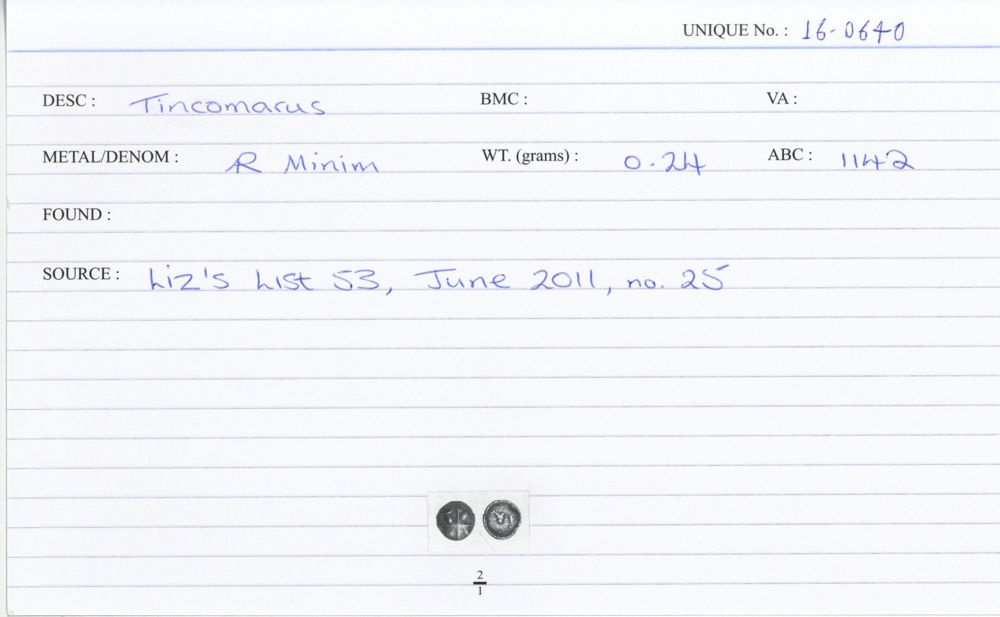 UNIQUE No. : 16-0640
DESC : Tincomarus BMC : VA :
METAL/DENOM : R Minim WT. (grams) : 0.24 ABC : 1142
FOUND :
SOURCE : Liz's List 53, June 2011, no. 25
2
1